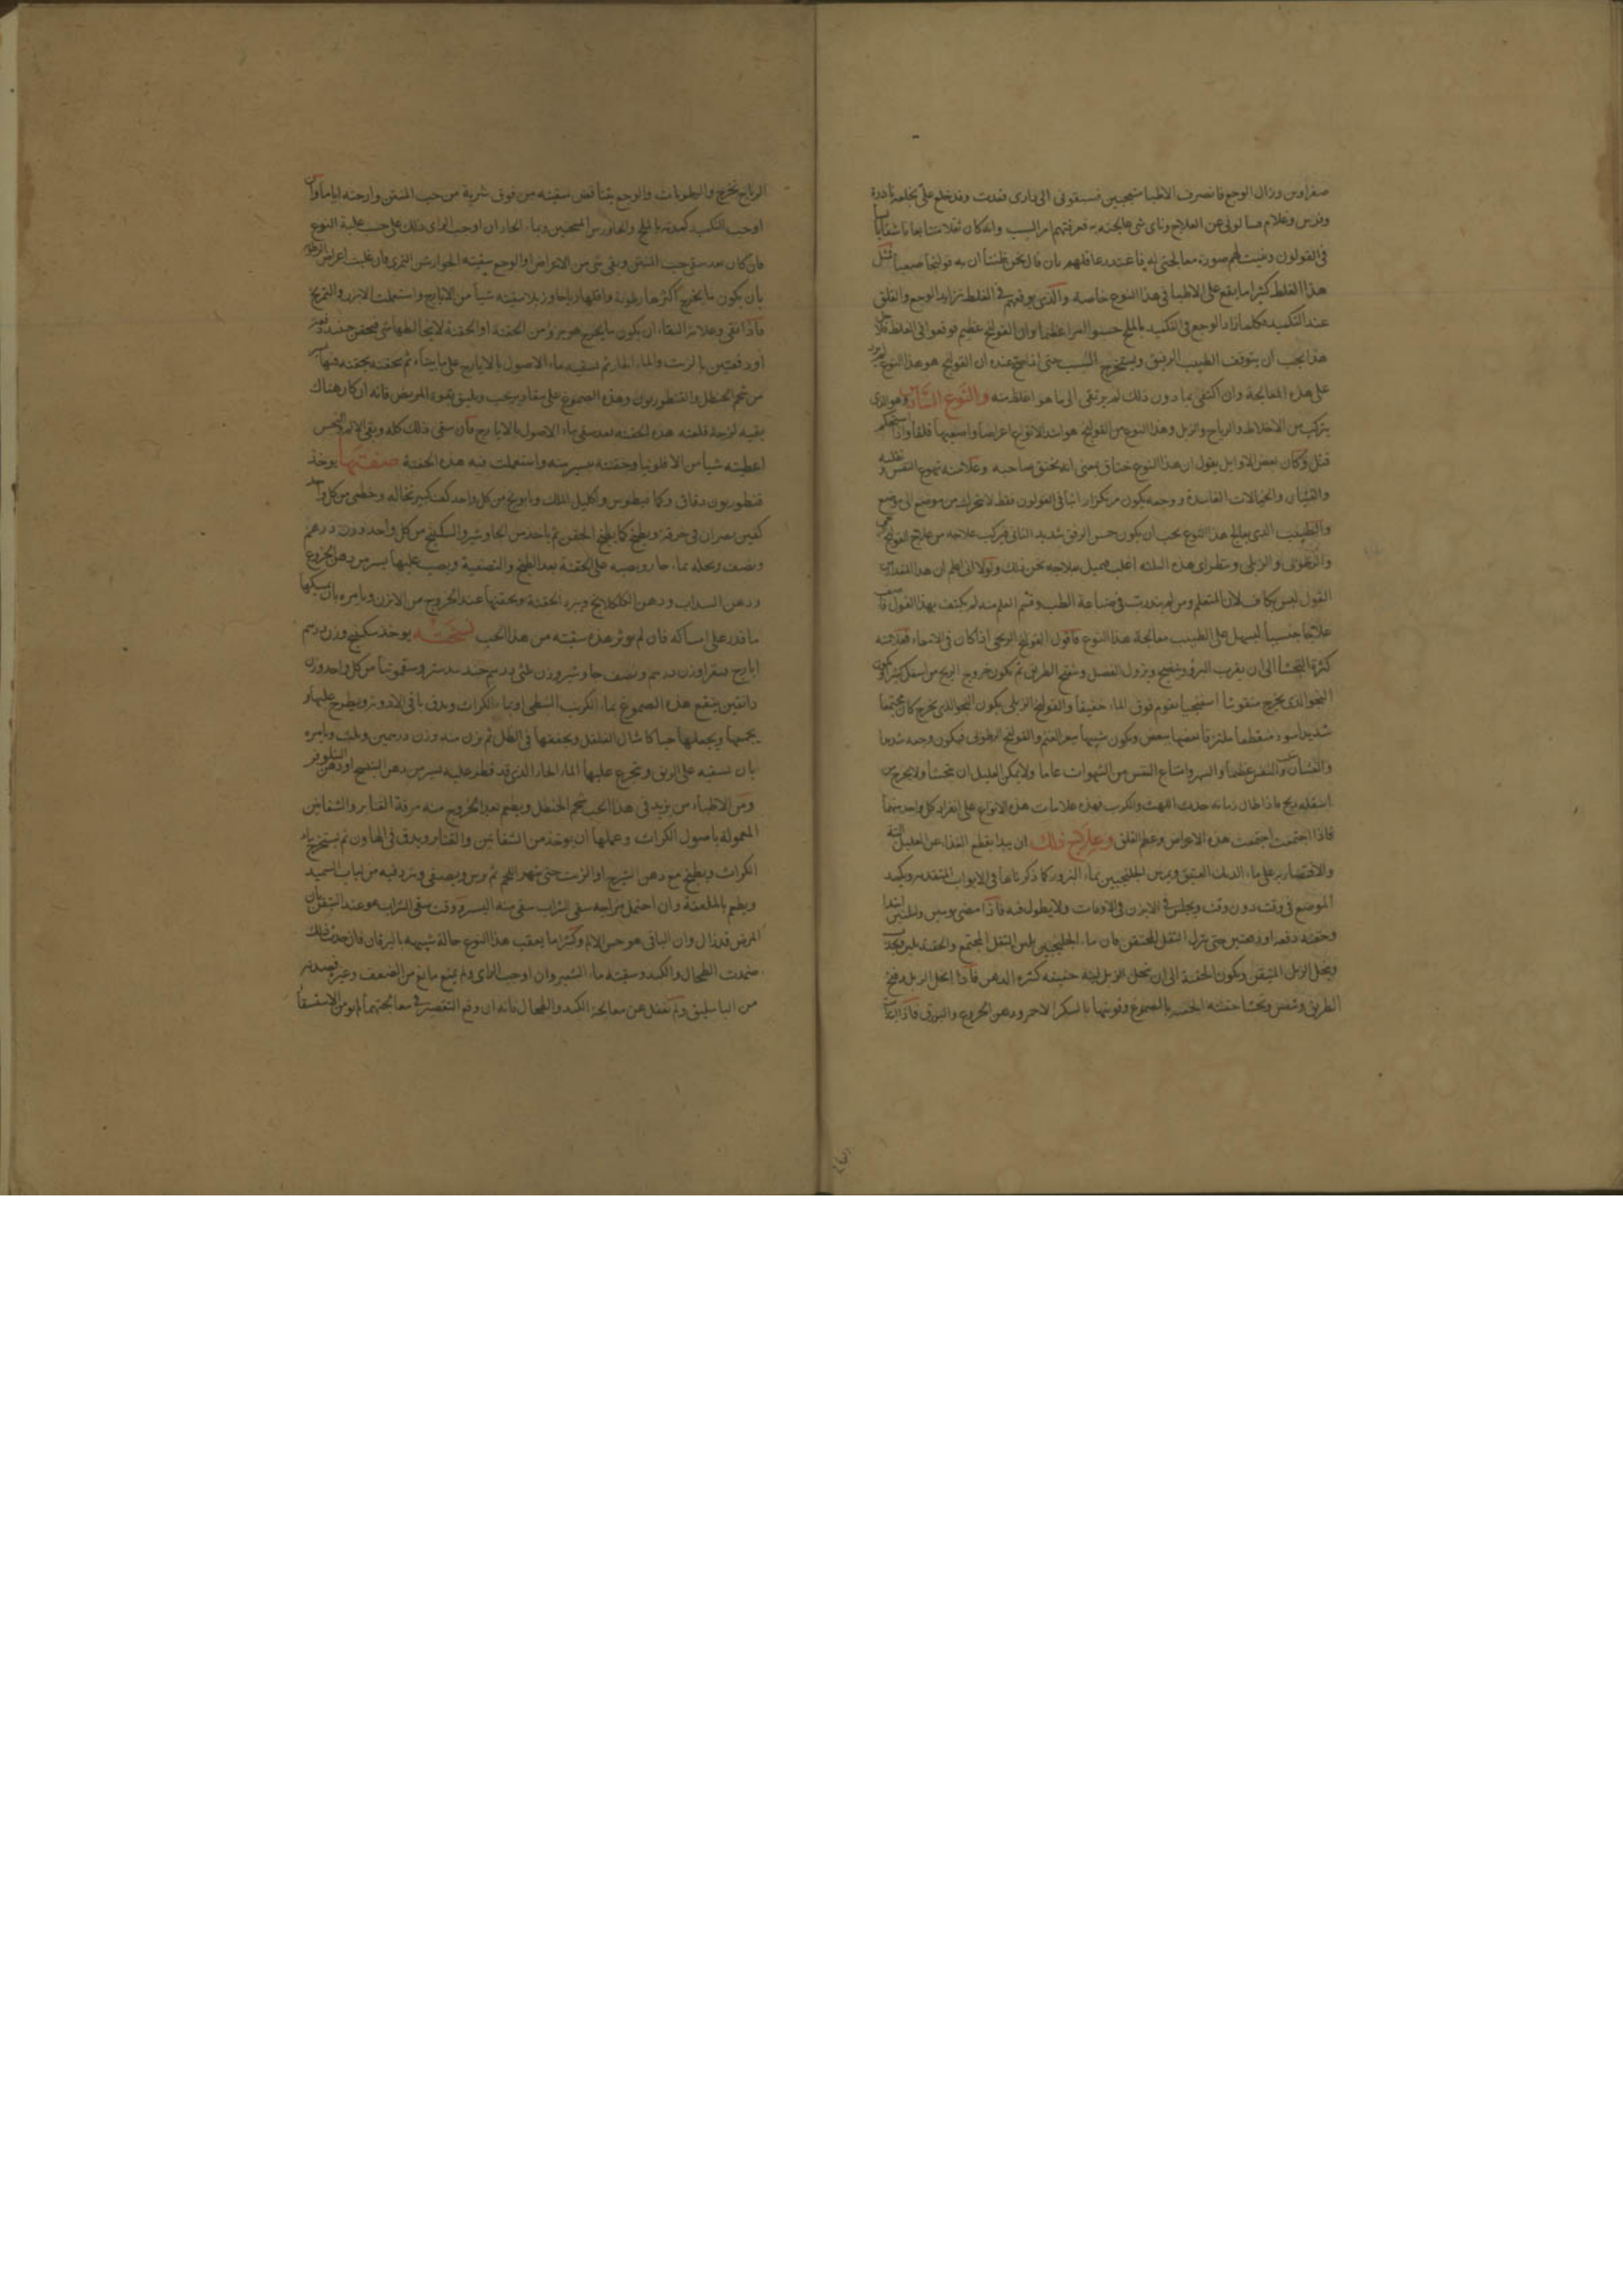 صفراوين وزال الوجع فانصرف الاطبا متعجبين فسبقونى الى دارى فعدت وقد خلع على بخلعة نادرة
وفرس وغلام فسالونى عن العلاج وباى شى عالجته به فعرفتهم امر السبب وانه كان ثفلا
فى القولون وصورة معالجتى له فاعتذر عاقلهم بان قال نحن ظننا ان به قولنجا صعبا
هذا الغلط كثيرا ما يقع على الاطبا فى هذا النوع خاصة والذى يوقعهم فى الغلط تزايد الوجع والقلق
عند التكميد فكلما زاد الوجع فى التكميد بالملح حسبوا امرا عظيما وان القولنج عظيم فوقعوا فى الغلط
هذا يجب ان يتوقف الطبيب الرفيق ويستخرج السبب حتى اذا صح عنده ان القولنج هو هذا النوع
على هذه المعالجة وان اكتفى بما دون ذلك لم يرتقى الى ما هو اغلظ منه والنوع السادس وهو الذى
يتركب من الاخلاط والرياح والزبل وهذا النوع من القولنج هو اشد الانواع اعراضا واصعبها قلقا واذا استحكم
قتل وكان بعض الاوايل يقول ان هذا النوع خناق بمعنى انه يخنق صاحبه وعلامته تهوع النفس
والغثيان والخيالات الفاسدة ووجعه يكون مركزا ثابتا فى القولون فقط لا يتحرك من موضع الى موضع
والطبيب الذى يعالج هذا النوع يجب ان يكون حسن الرفق شديد التانى فيركب علاجه من علاج القولنج
والرطوبى والزبلى وينظر اى هذه الثلثة اغلب فيميل علاجه نحو ذلك ولولا انى اعلم ان هذا المقدار من
القول ليس بكاف لان المتعلم ومن لم يتدرب فى صناعة الطب وقسم العلم منه لم يكتف بهذا القول
علاجا جنسيا ليسهل على الطبيب معالجة هذا النوع فاقول القولنج الريحى اذا كان فى الامعاء فعلامته
كثرة التجشأ الى ان يقرب البرؤ وينفتح ويزول الفصل وينفتح الطريق ثم يكون خروج الريح من اسفل كثيرا
النجو الذى يخرج منفوشا اسفنجيا يقوم فوق الماء خفيفا والقولنج الزبلى يكون النجو الذى يخرج كان مجتمعا
شديدا اسود منقطعا ملتزقا بعضها ببعض ويكون شبيها ببعر الغنم والقولنج الرطوبى فيكون وجعه شديدا
والغثيان والنفس عظيما والسهر وامتناع النفس من الشهوات عاما ولا يمكن العليل ان يتجشأ ولا يخرج من
اسفله ريح فاذا طال زمانه حدث اللهث والكرب فهذه علامات هذه الانواع على انفراد كل واحد منها
فاذا اجتمعت اجتمعت هذه الاعراض وعظم القلق وعلاج ذلك ان يبدا بقطع الغذاء عن العليل البتة
والاقتصار به على ماء الديك العتيق ويمرس الجلنجبين بماء البزور كما ذكرناها فى الابواب المتقدمة ويكمد
الموضع فى وقت دون وقت ويجلس فى الابزن فى الاوقات ولا يطول فيه فاذا مضى يومين
وحقنه دفعة او دفعتين حتى ينزل الثفل المحتقن فان ماء الجلنجبين يلين الثفل المجتمع والحقنة تلين
ويحلل الزبل المتيقن ويكون الحقنة الى ان يتحلل الزبل لينة خفيفة كثيرة الدهن فاذا انحل الزبل وفتح
الطريق وتنفس وتجشا حقنته الحقنة بالصموغ وقويتها بالسكر الاحمر ودهن الخروع والبورق
الرياح تخرج والرطوبات والوجع يتناقص سقيته من فوق شربة من حب المنتن وارحته اياما وان
اوجب التكميد كمدته بالملح والجاورس المسخنين وبماء الحار ان اوجب الراى ذلك على حسب غلبة النوع
فان كان بعد سقى حب المنتن وبقى شى من الاعراض او الوجع سقيته الجوارشن التمرى فان غلبت اعراض
بان يكون ما يخرج اكثرها رطوبة واقلها رياحا وزبلا سقيته شيأ من الايارج واستعملت الابزن والتمريخ
فاذا نقى وعلامة النقاء ان يكون ما يخرج هو جزؤ من الحقنة او الحقنة لا يخالطها شى فيحقن حينئذ دفعة
او دفعتين بالزيت والماء الحار ثم نسقيه ماء الاصول بالايارج على ما بيناه ثم نحقنه بحقنة فيها
من شحم الحنظل والقنطوريون وهذه الصموغ على مقادير يجب ويليق بقوة المريض فانه ان كان هناك
بقية لزجة قلعته هذه الحقنة بعد سقى ماء الاصول بالايارج فان سقى ذلك كله وبقى الالم والنخس
اعطيته شيأ من الافلونيا وحقنته بيسير منه واستعملت فيه هذه الحقنة صفتها يوخذ
قنطوريون دقاق وكمافيطوس واكليل الملك وبابونج من كل واحد كف كبير نخاله وخطمى من كل واحد
كفين يصران فى خرقة ويطبخ كما يطبخ الحقن ثم ياخذ من الجاوشير والسكبينج من كل واحد وزن درهم
ونصف ويحله بماء حار ويصبه على الحقنة بعد الطبخ والتصفية ويصب عليها يسير من دهن الخروع
ودهن السداب ودهن الكلكلانج ويبرد الحقنة ويحقنها عند الخروج من الابزن ويامره بان يمسكها
ما قدر على امساكه فان لم يوثر هذه سقيته من هذا الحب نسخته يوخذ سكبينج وزن درهم
ايارج فيقرا وزن درهم ونصف جاوشير وزن ثلثى درهم جندبيدستر وسقمونيا من كل واحد وزن
دانقين ينقع هذه الصموغ بماء الكرنب النبطى او بماء الكراث ويدق باقى الادوية ويطرح عليها
يجمعها ويجعلها حبا كامثال الفلفل ويجففها فى الظل ثم يزن منه وزن درهمين وثلث ويامره
بان نسقيه على الريق ويتجرع عليها الماء الحار الذى قد قطر عليه يسير من دهن البنفسج او دهن النيلوفر
ومن الاطباء من يزيد فى هذا الحب شحم الحنظل ويطعم بعد الخروج منه مرقة القنابر والشفانين
المعمولة باصول الكراث وعملها ان يوخذ من الشفانين والقنابر ويدق فى الهاون ثم يستخرج ماء
الكراث ويطبخ مع دهن الشيرج او الزيت حتى يتهرا اللحم ثم يمرس ويصفى ويثرد فيه من لباب السميد
ويطعم بالملعقة وان احتمل مزاجه سقى الشراب سقى منه اليسير ووقت سقى الشراب هو عند التيقن بان
المرض قد زال وان الباقى هو حس الالم وكثيرا ما يعقب هذا النوع حالة شبيهه باليرقان فان حدث ذلك
ضمدت الطحال والكبد وسقيته ماء الشعير وان اوجب الراى ولم يمنع مانع من الضعف وغيره فصدته
من الباسليق ولم تغفل عن معالجة الكبد والطحال فانه ان وقع التقصير فى معالجتهما لم يومن الاستسقا